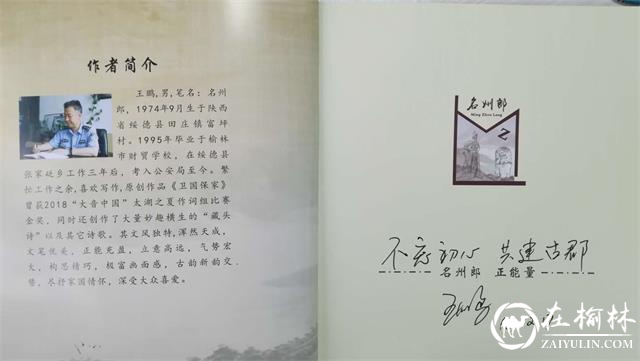 作者简介
王鹏,男,笔名：名州
郎，1974年9月生于陕西
省绥德县田庄镇富坪
村。1995年毕业于榆林
市财贸学校，在绥德县
张家砭乡工作三年后，考入公安局至今。繁
忙工作之余,喜欢写作,原创作品《卫国保家》
曾获2018“大音中国”太湖之夏作词组比赛
金奖，同时还创作了大量妙趣横生的“藏头
诗”以及其它诗歌。其文风独特,浑然天成，
文笔优美，正能充盈，立意高远，气势宏
大，构思精巧，极富画面感，古韵新韵交
替，尽抒家国情怀，深受大众喜爱。
名州郎
Ming Zhou Lang
不忘初心 共建古郡
名州郎 正能量
在榆林
ZAIYULIN.COM